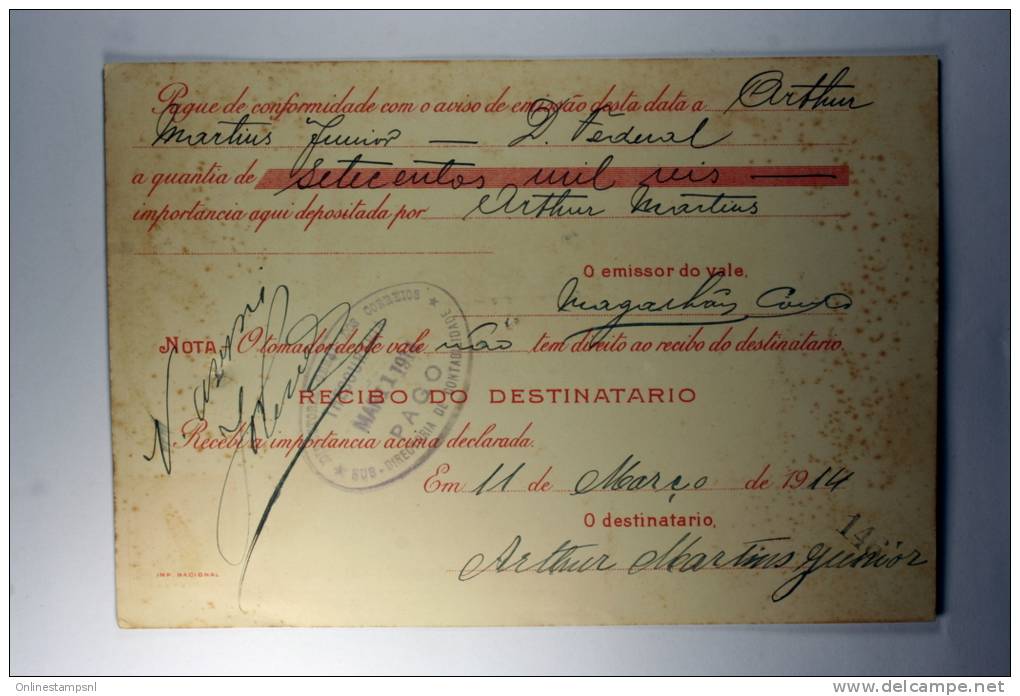 Pague de conformidade com o aviso de emissão desta data a Arthur
Martins Junior — D. Federal
a quantia de setecentos mil reis —
importancia aqui depositada por Arthur Martins
O emissor do vale,
Magalhães
NOTA: O tomador deste vale não tem direito ao recibo do destinatario.
RECIBO DO DESTINATARIO
Recebi a importancia acima declarada.
Em 11 de Março de 1914
O destinatario,
Arthur Martins Junior
CORREIOS
MAR 11 191
PAGO
SUB-DIRECTORIA DE CONTABILIDADE
14
IMP. NACIONAL
Onlinestampsnl
delcampe.net